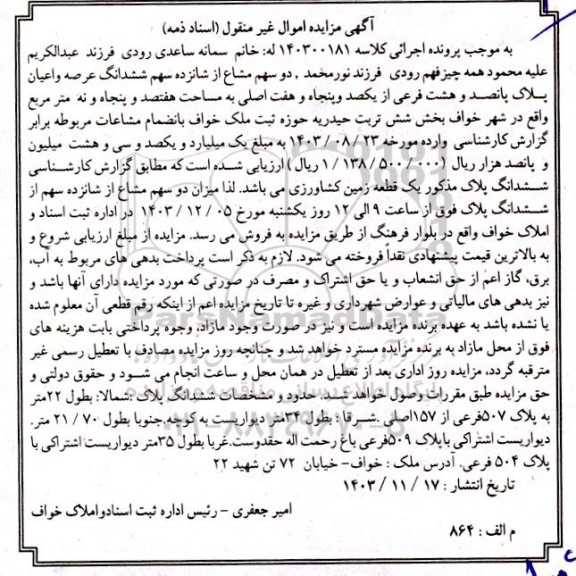 آگهی مزایده اموال غیر منقول (اسناد ذمه)
به موجب پرونده اجرائی کلاسه ۱۴۰۳۰۰۱۸۱ له: خانم سمانه ساعدی رودی فرزند عبدالکریم
علیه محمود همه چیزفهم رودی فرزند نورمحمد , دو سهم مشاع از شانزده سهم ششدانگ عرصه واعیان
پلاک پانصد و هشت فرعی از یکصد وپنجاه و هفت اصلی به مساحت هفتصد و پنجاه و نه متر مربع
واقع در شهر خواف بخش شش تربت حیدریه حوزه ثبت ملک خواف بانضمام مشاعات مربوطه برابر
گزارش کارشناسی وارده مورخه ۲۳ / ۰۸ / ۱۴۰۳ به مبلغ یک میلیارد و یکصد و سی و هشت میلیون
و پانصد هزار ریال (۱/۱۳۸/۵۰۰/۰۰۰ ریال) ارزیابی شده است که مطابق گزارش کارشناسی
ششدانگ پلاک مذکور یک قطعه زمین کشاورزی می باشد. لذا میزان دو سهم مشاع از شانزده سهم از
ششدانگ پلاک فوق از ساعت ۹ الی ۱۲ روز یکشنبه مورخ ۰۵ / ۱۲ / ۱۴۰۳ در اداره ثبت اسناد و
املاک خواف واقع در بلوار فرهنگ از طریق مزایده به فروش می رسد. مزایده از مبلغ ارزیابی شروع و
به بالاترین قیمت پیشنهادی نقداً فروخته می شود. لازم به ذکر است پرداخت بدهی های مربوط به آب،
برق، گاز اعم از حق انشعاب و یا حق اشتراک و مصرف در صورتی که مورد مزایده دارای آنها باشد و
نیز بدهی های مالیاتی و عوارض شهرداری و غیره تا تاریخ مزایده اعم از اینکه رقم قطعی آن معلوم شده
یا نشده باشد به عهده برنده مزایده است و نیز در صورت وجود مازاد، وجوه پرداختی بابت هزینه های
فوق از محل مازاد به برنده مزایده مسترد خواهد شد و چنانچه روز مزایده مصادف با تعطیل رسمی غیر
مترقبه گردد، مزایده روز اداری بعد از تعطیل در همان محل و ساعت انجام می شود و حقوق دولتی و
حق مزایده طبق مقررات وصول خواهد شد. حدود و مشخصات ششدانگ پلاک :شمالا: بطول ۲۲متر
به پلاک ۵۰۷فرعی از ۱۵۷اصلی .شرقا : بطول ۳۴متر دیواریست به کوچه.جنوبا بطول ۷۰ / ۲۱ متر.
دیواریست اشتراکی باپلاک ۵۰۹فرعی باغ رحمت اله حقدوست.غربا بطول ۳۵متر دیواریست اشتراکی با
پلاک ۵۰۴ فرعی. آدرس ملک : خواف- خیابان ۷۲ تن شهید ۲۲
تاریخ انتشار : ۱۷ / ۱۱ / ۱۴۰۳
امیر جعفری - رئیس اداره ثبت اسنادو املاک خواف
م الف : ۸۶۴